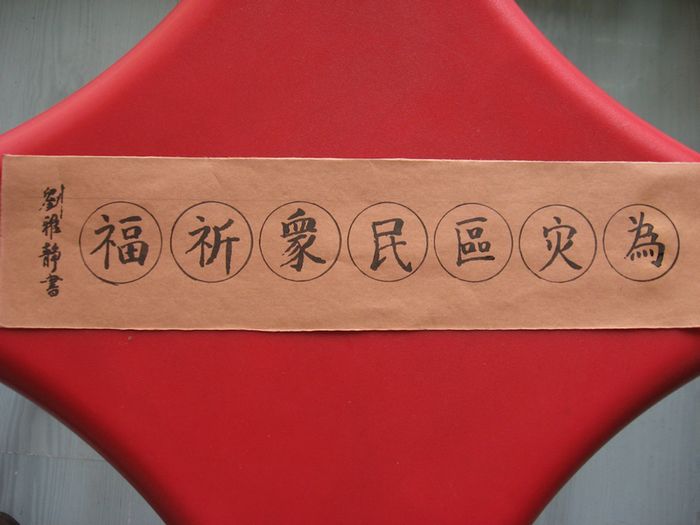 為灾區民眾祈福
劉雅靜書